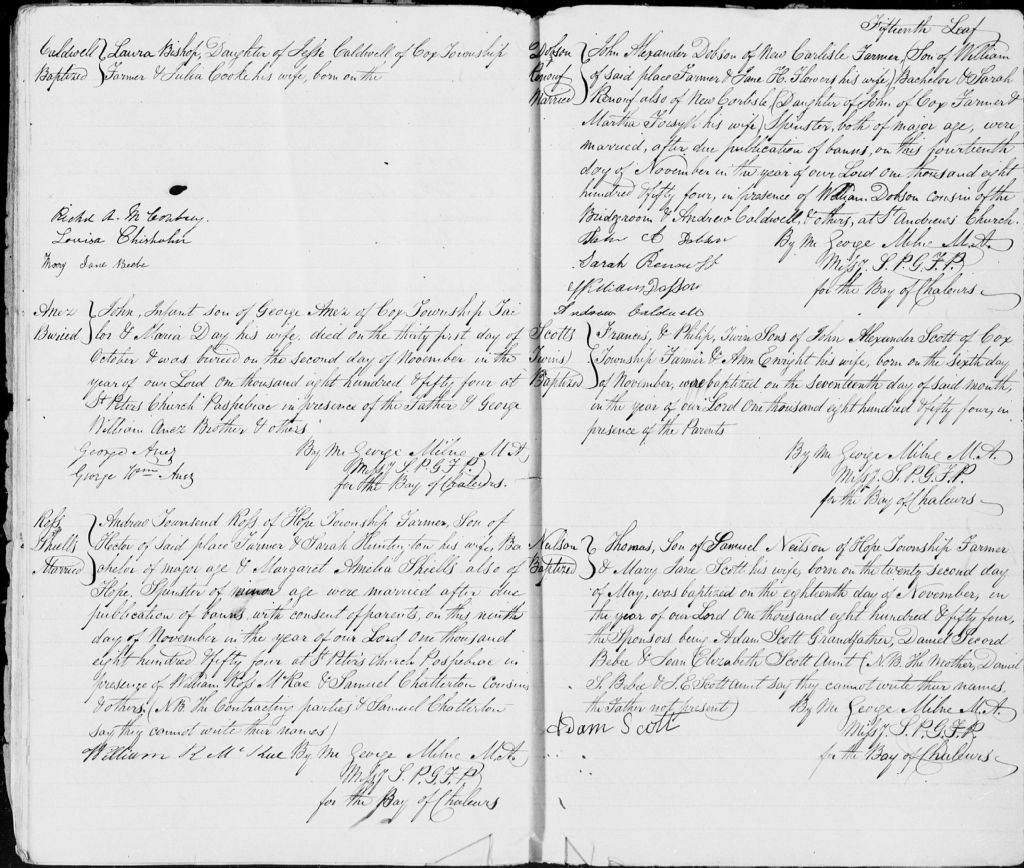 Caldwell Baptized
Laura Bishop, Daughter of Jesse Caldwell of Cox Township
Farmer & Julia Cooke his wife, born on the
Richd A. McConbrey
Louisa Chisholm
Mary Jane Beebe
Anez Buried
John, Infant son of George Anez of Cox Township Tai
lor & Maria Day his wife, died on the thirty first day of
October & was buried on the second day of November in the
year of our Lord One thousand eight hundred & fifty four at
St Peters Church Paspebiac in presence of the Father & George
William Anez Brother & others
George Anez
By Me George Milne M.A.
George Wm Anez
Missy. S.P.G.F.P.
for the Bay of Chaleurs.
Ross Shiells Married
Andrew Townsend Ross of Hope Township Farmer, Son of
Hector of said place Farmer & Sarah Huntington his wife, Ba
chelor of major age & Margaret Amelia Shiells also of
Hope, Spinster of minor age were married after due
publication of banns, with consent of parents, on this ninth
day of November in the year of our Lord One thousand
eight hundred & fifty four at St Peters Church Paspebiac in
presence of William Ross McRae & Samuel Chatterton cousins
& others. (N.B. The Contracting parties & Samuel Chatterton
say they cannot write their names)
William R McRae
By Me George Milne M.A.
Missy S.P.G.F.P.
for the Bay of Chaleurs
Fifteenth Leaf
Dobson Renouf Married
John Alexander Dobson of New Carlisle Farmer, (Son of William
of said place Farmer & Jane H. Flowers his wife) Bachelor & Sarah
Renouf also of New Carlisle (Daughter of John of Cox Farmer &
Martha Forsyth his wife) Spinster, both of major age, were
married, after due publication of banns, on this fourteenth
day of November in the year of our Lord One thousand eight
hundred & fifty four, in presence of William Dobson cousin of the
Bridegroom & Andrew Caldwell, & others, at St Andrews Church.
John A Dobson
By Me George Milne M.A.
Sarah Renouff
Missy. S.P.G.F.P.
William Dobson
for the Bay of Chaleurs
Andrew Caldwell
Scotts Twins Baptized
Francis, & Philip, Twin Sons of John Alexander Scott of Cox
Township Farmer & Ann Enright his wife, born on the sixth day
of November, were baptized on the seventeenth day of said month,
in the year of our Lord One thousand eight hundred & fifty four, in
presence of the Parents
By Me George Milne M.A.
Missy. S.P.G.F.P.
for the Bay of Chaleurs
Neilson Baptized
Thomas, Son of Samuel Neilson of Hope Township Farmer
& Mary Jane Scott his wife, born on the twenty second day
of May, was baptized on the eighteenth day of November, in
the year of our Lord One thousand eight hundred & fifty four,
the Sponsors being Adam Scott Grandfather, Daniel Secord
Bebee & Jean Elizabeth Scott Aunt (N.B. The Mother, Daniel
S. Bebee & J.E. Scott Aunt say they cannot write their names,
the Father not present)
By Me George Milne M.A.
Adam Scott
Missy. S.P.G.F.P.
for the Bay of Chaleurs